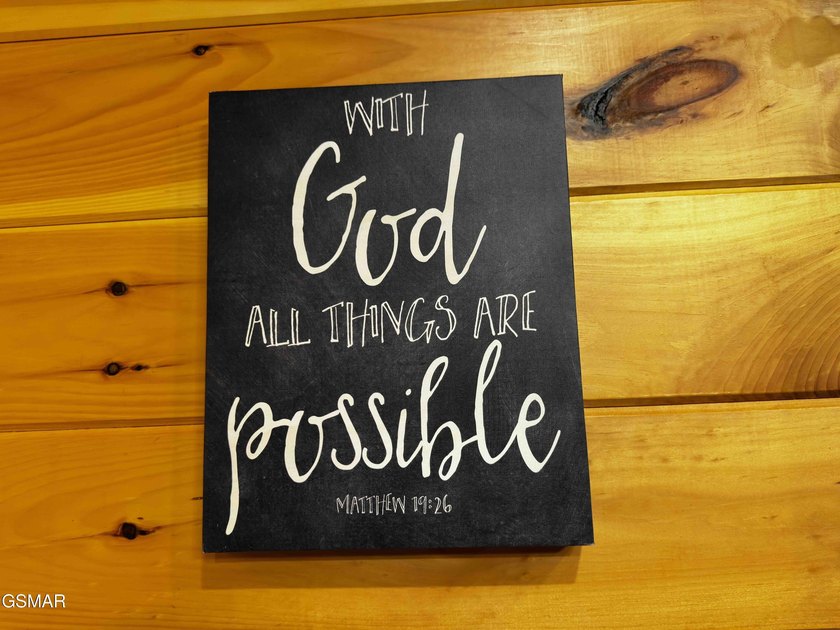 WITH
God
ALL THINGS ARE
possible
MATTHEW 19:26
GSMAR